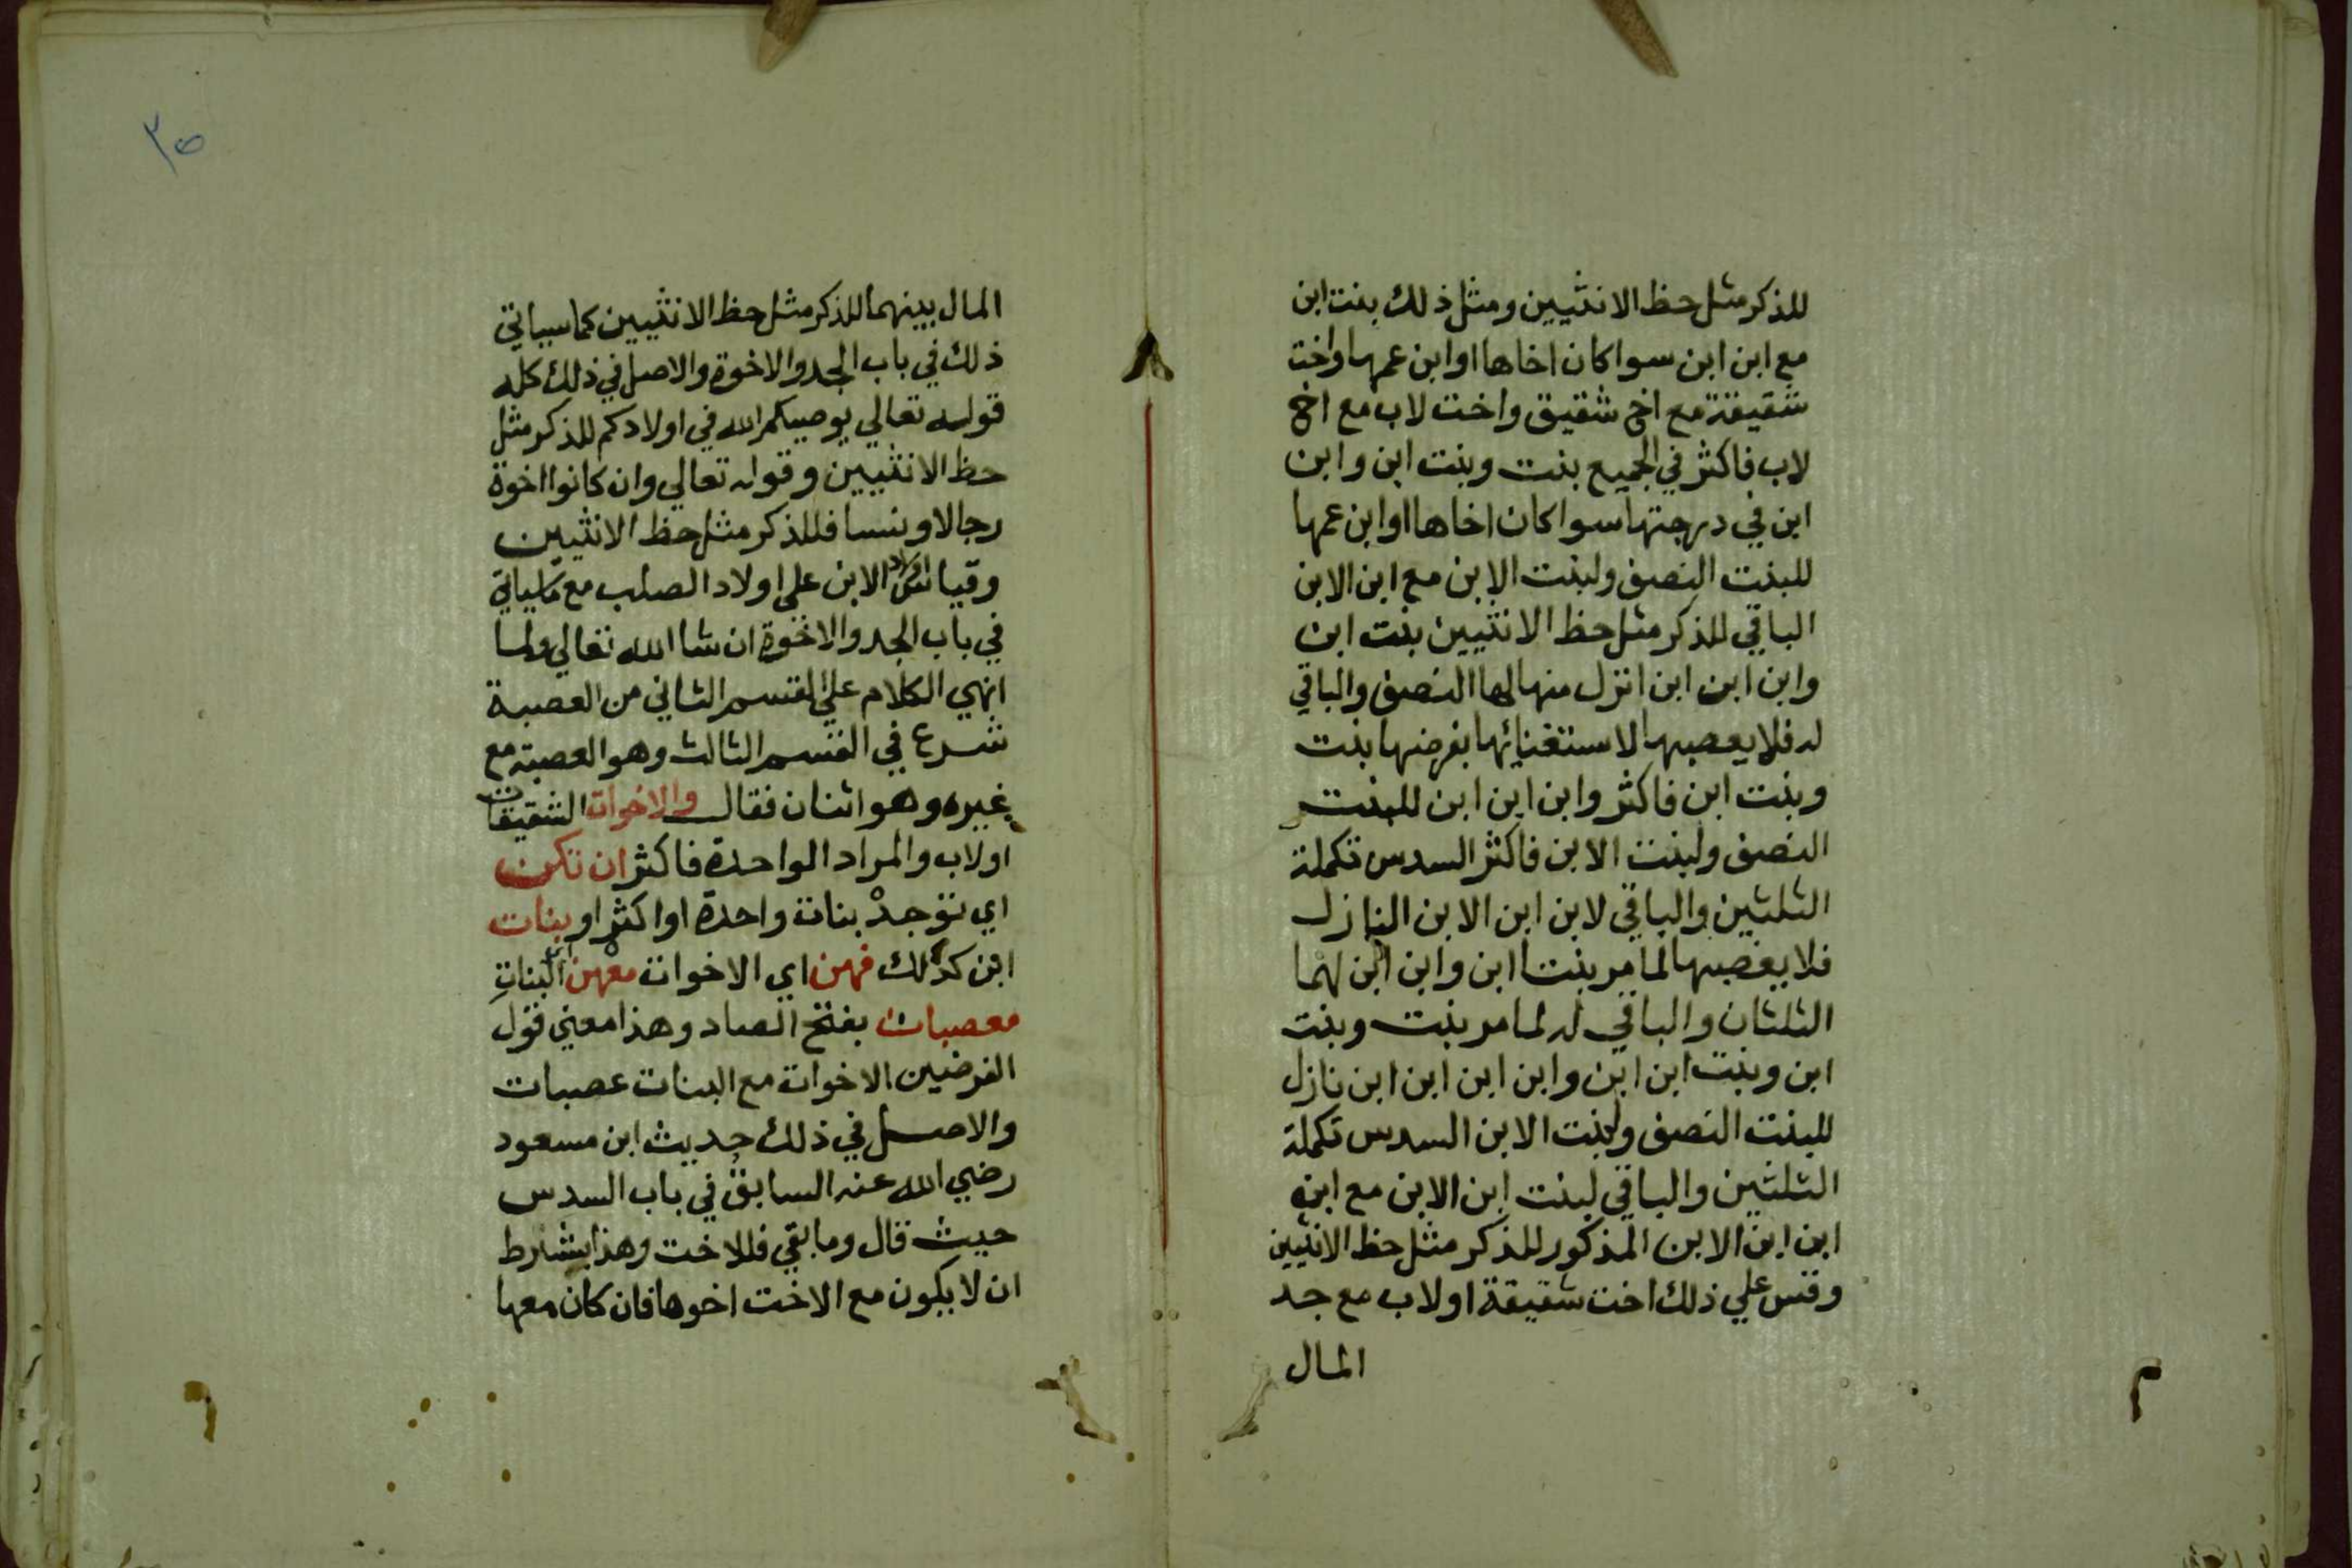 للذكر مثل حظ الانثيين ومثل ذلك بنت ابن
مع ابن ابن سوا كان اخاها او ابن عمها واخت
شقيقة مع اخ شقيق واخت لاب مع اخ
لاب فاكثر في الجميع بنت وبنت ابن وابن
ابن في درجتها سوا كان اخاها او ابن عمها
للبنت النصف ولبنت الابن مع ابن الابن
الباقي للذكر مثل حظ الانثيين بنت ابن
وابن ابن ابن انزل منها لها النصف والباقي
له فلا يعصبها لاستغنائها بفرضها بنت
وبنت ابن فاكثر وابن ابن ابن للبنت
النصف ولبنت الابن فاكثر السدس تكملة
الثلثين والباقي لابن ابن الابن النازل
فلا يعصبها لما مر بنتا ابن وابن ابن لهما
الثلثان والباقي له لما مر بنت وبنت
ابن وبنت ابن ابن وابن ابن ابن ابن نازل
للبنت النصف ولبنت الابن السدس تكملة
الثلثين والباقي لبنت ابن الابن مع ابن
ابن ابن الابن المذكور للذكر مثل حظ الانثيين
وقس علي ذلك اخت شقيقة او لاب مع جد
المال
٣٥
المال بينهما للذكر مثل حظ الانثيين كما سياتي
ذلك في باب الجد والاخوة والاصل في ذلك كله
قوله تعالي يوصيكم الله في اولادكم للذكر مثل
حظ الانثيين وقوله تعالي وان كانوا اخوة
رجالا ونسا فللذكر مثل حظ الانثيين
وقياس اولاد الابن علي اولاد الصلب مع ما سياتي
في باب الجد والاخوة ان شا الله تعالي ولما
انهي الكلام علي القسم الثاني من العصبة
شرع في القسم الثالث وهو العصبة مع
غيره وهو اثنان فقال والاخوات الشقيقات
او لاب والمراد الواحدة فاكثر ان تكن
اي توجد بنات واحدة او اكثر او بنات
ابن كذلك فهن اي الاخوات معهن اي البنات
معصبات بفتح الصاد وهذا معني قول
الفرضيين الاخوات مع البنات عصبات
والاصل في ذلك حديث ابن مسعود
رضي الله عنه السابق في باب السدس
حيث قال وما بقي فللاخت وهذا بشرط
ان لا يكون مع الاخت اخوها فان كان معها